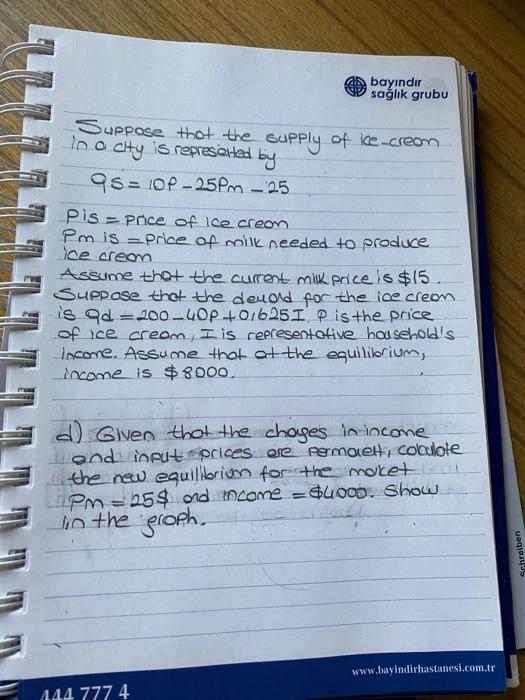 bayındır
sağlık grubu
Suppose that the supply of ice-cream
in a city is represented by
qs = 10P - 25Pm - 25
P is = price of ice cream
Pm is = price of milk needed to produce
ice cream
Assume that the current milk price is $15.
Suppose that the demand for the ice cream
is qd = 200 - 40P + 0,625I. P is the price
of ice cream, I is representative household's
income. Assume that at the equilibrium,
income is $8000.
d) Given that the changes in income
and input prices are permanent, calculate
the new equilibrium for the market
Pm = 25$ and income = $4000. Show
in the graph.
www.bayindirhastanesi.com.tr
444 777 4
Schreiben